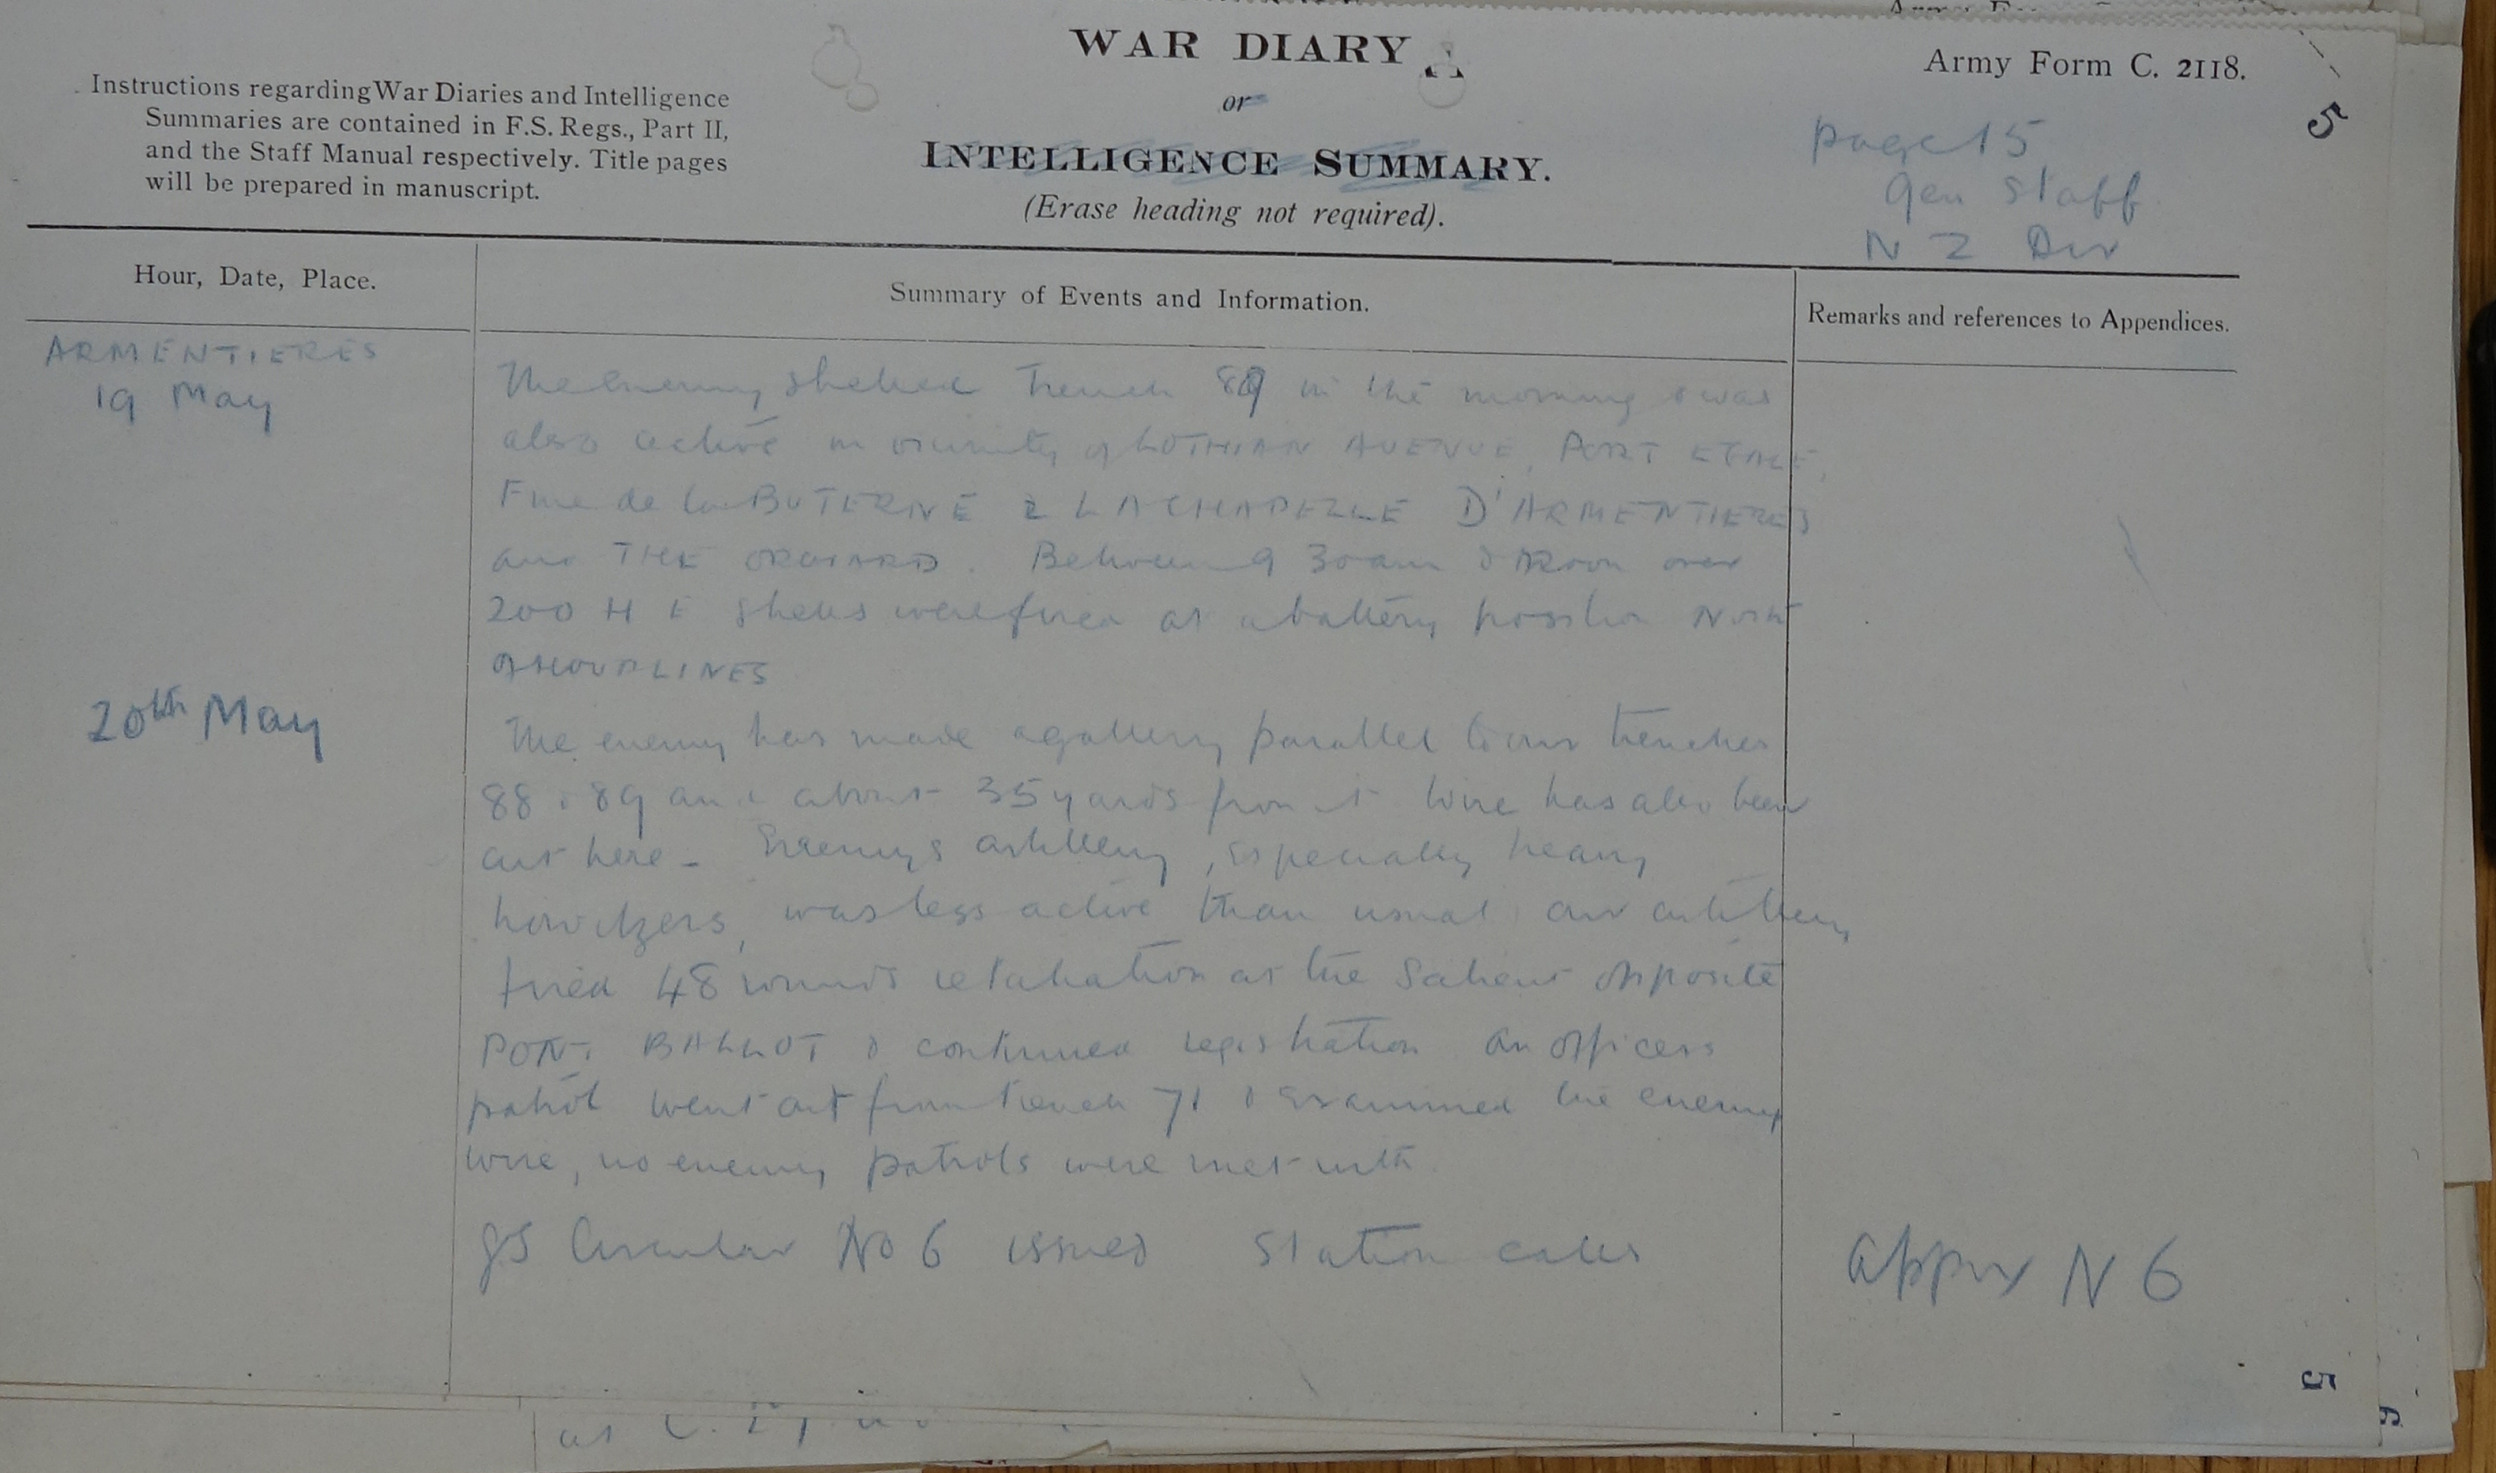 WAR DIARY
or
INTELLIGENCE SUMMARY.
(Erase heading not required).
Army Form C. 2118.
Instructions regarding War Diaries and Intelligence
Summaries are contained in F.S. Regs., Part II,
and the Staff Manual respectively. Title pages
will be prepared in manuscript.
5
page 15
Gen Staff
N Z Div
Hour, Date, Place.
Summary of Events and Information.
Remarks and references to Appendices.
ARMENTIERES
19 May
The Enemy shelled Trench 89 in the morning & was
also active in vicinity of LOTHIAN AVENUE, PORT EGALE,
Fme de la BUTERNE & LA CHAPELLE D'ARMENTIERES
and THE ORCHARD. Between 9 30am & noon over
200 H E shells were fired at a battery position North
of HOUPLINES
20th May
The enemy has made a gallery parallel to our trenches
88 & 89 and about 35 yards from it wire has also been
cut here - Enemys artillery, especially heavy
howitzers, was less active than usual our artillery
fired 48 rounds retaliation at the salient opposite
PONT BALLOT & continued registration an officers
patrol went out from trench 71 & examined the enemy
wire, no enemy patrols were met with.
GS Circular No 6 issued Station calls
Appx N 6
5